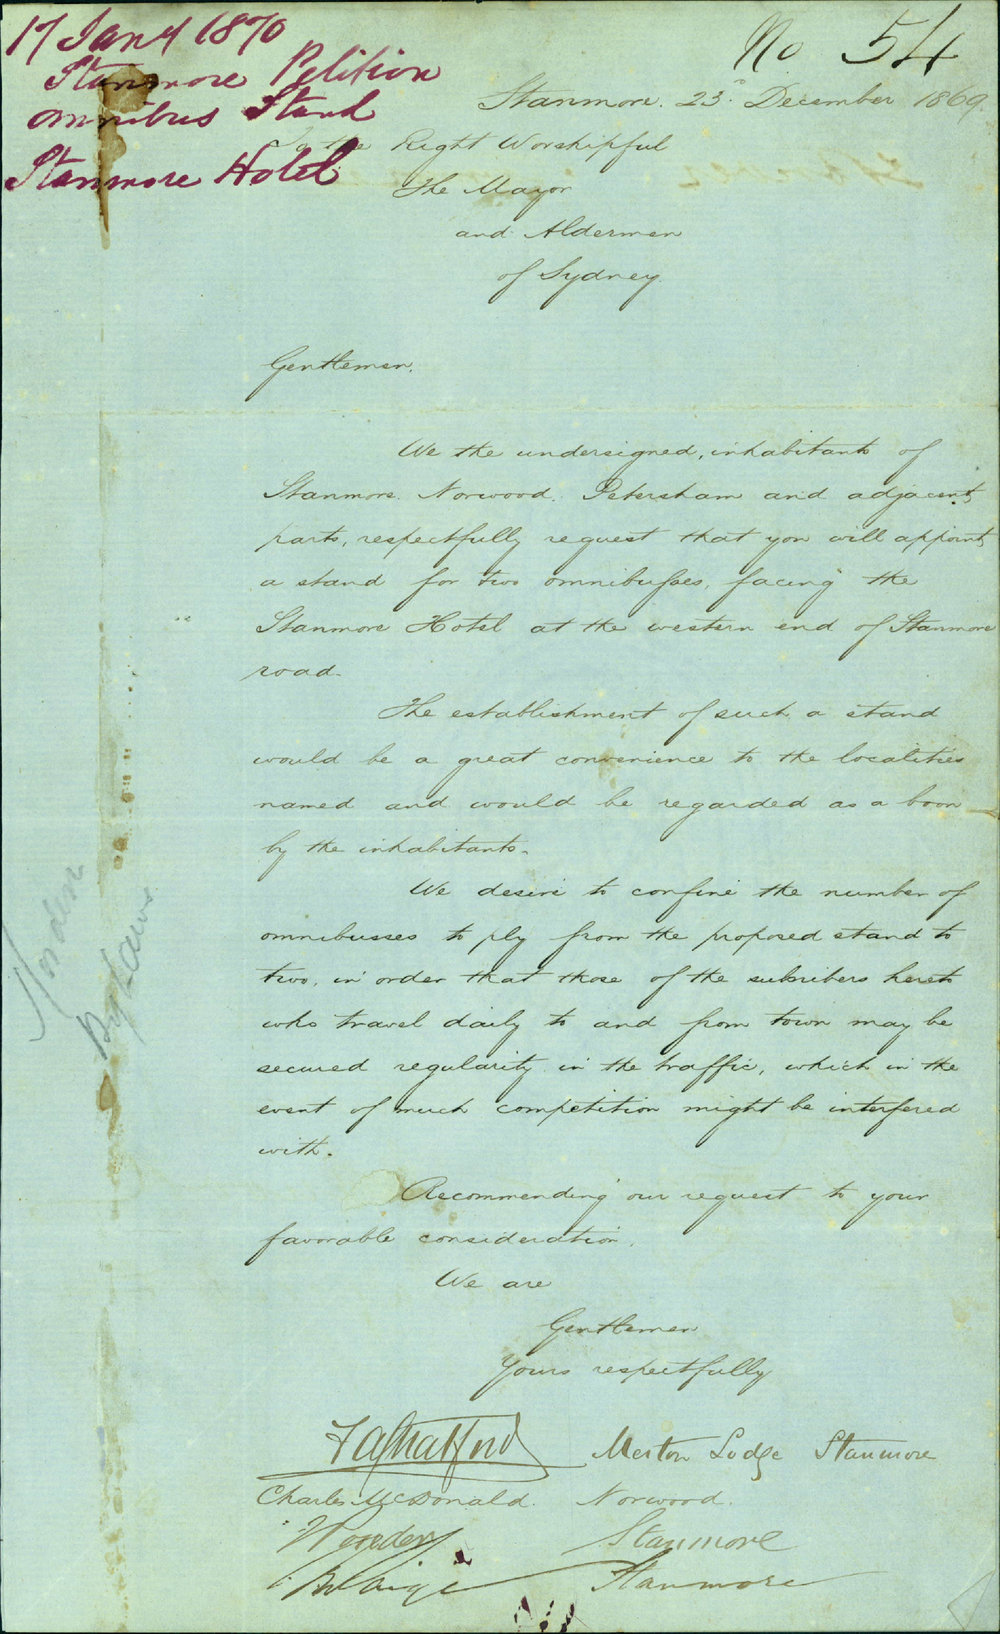 17 Jany 1870
Stanmore Petition
omnibus Stand
Stanmore Hotel
No 54
Stanmore. 23. December 1869.
To the Right Worshipful
The Mayor
and Aldermen
of Sydney.
Gentlemen.
We the undersigned, inhabitants of
Stanmore. Norwood. Petersham and adjacent
parts, respectfully request that you will appoint
a stand for two omnibusses, facing the
Stanmore Hotel at the western end of Stanmore
road.
The establishment of such a stand
would be a great convenience to the localities
named and would be regarded as a boon
by the inhabitants.
We desire to confine the number of
omnibusses to ply from the proposed stand to
two, in order that those of the subsribers hereto
who travel daily to and from town may be
secured regularity in the traffic, which in the
event of much competition might be interfered
with.
Recommending our request to your
favorable consideration.
We are
Gentlemen
Yours respectfully
Merton Lodge Stanmore
Charles McDonald. Norwood.
Stanmore
Stanmore
By Laws